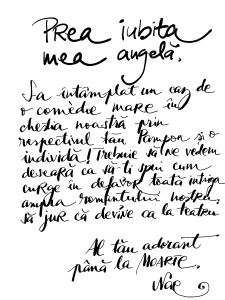 Prea iubita
mea angelă,
S-a întâmplat un caz de
o comèdie mare în
chestia noastră prin
respectivul tău Pampon și o
individă! Trebuie să ne vedem
deseară ca să-ți spui cum
curge în defavor toată intriga
asupra romanțului nostru,
să jur că devine ca la teatru
Al tău adorant
până la MOARTE,
Nae